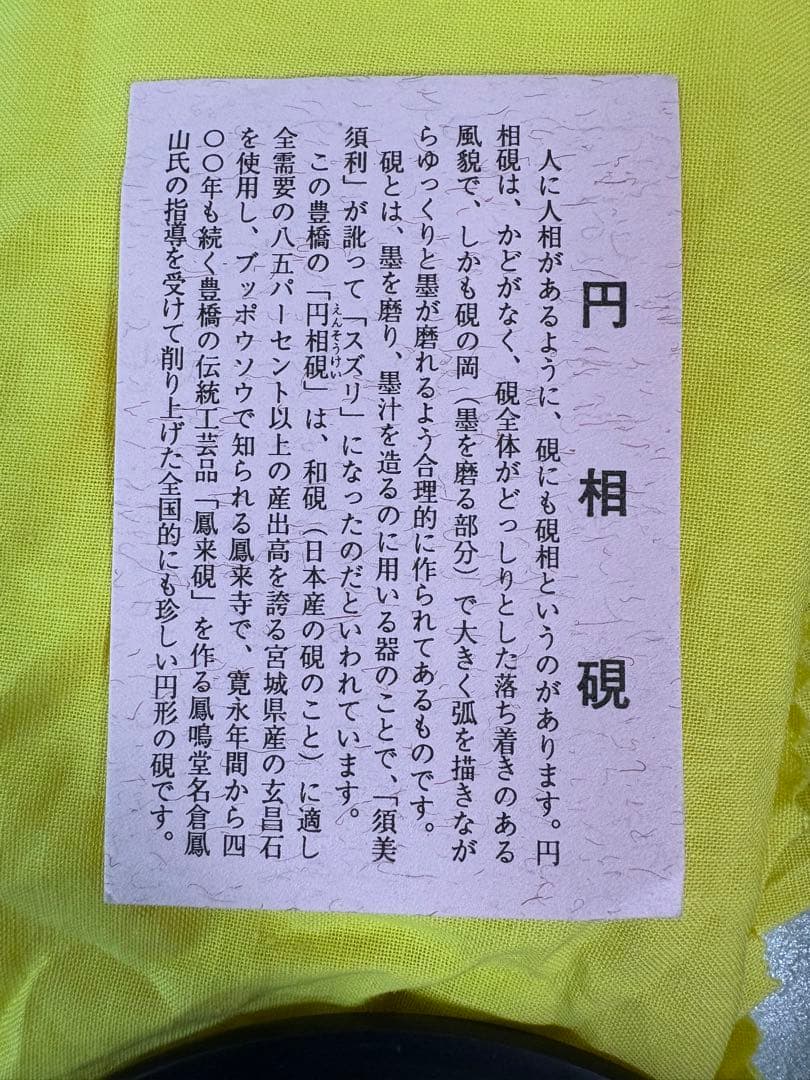 円相硯
人に人相があるように、硯にも硯相というのがあります。円
相硯は、かどがなく、硯全体がどっしりとした落ち着きのある
風貌で、しかも硯の岡（墨を磨る部分）で大きく弧を描きなが
らゆっくりと墨が磨れるよう合理的に作られてあるものです。
硯とは、墨を磨り、墨汁を造るのに用いる器のことで、「須美
須利」が訛って「スズリ」になったのだといわれています。
この豊橋の「円相硯」は、和硯（日本産の硯のこと）に適し
えんそうけい
全需要の八五パーセント以上の産出高を誇る宮城県産の玄昌石
を使用し、ブッポウソウで知られる鳳来寺で、寛永年間から四
〇〇年も続く豊橋の伝統工芸品「鳳来硯」を作る鳳鳴堂名倉鳳
山氏の指導を受けて削り上げた全国的にも珍しい円形の硯です。